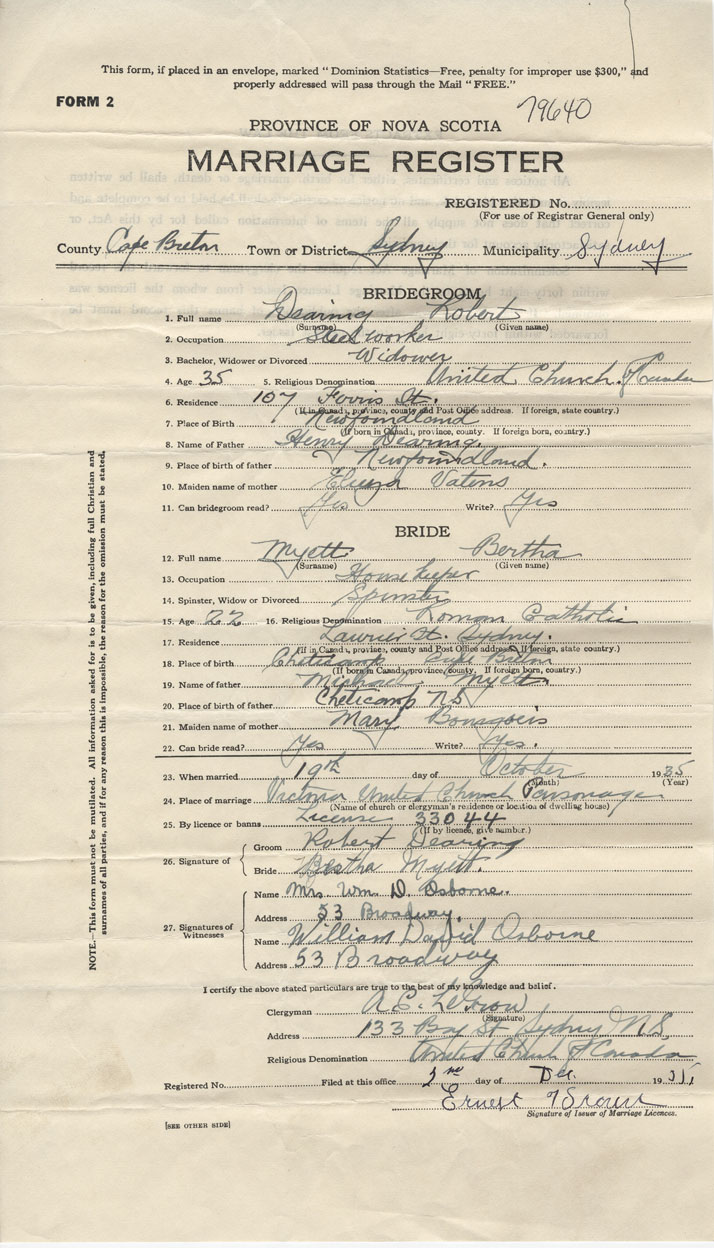 This form, if placed in an envelope, marked "Dominion Statistics—Free, penalty for improper use $300," and
properly addressed will pass through the Mail "FREE."
FORM 2
79640
PROVINCE OF NOVA SCOTIA
MARRIAGE REGISTER
REGISTERED No.
(For use of Registrar General only)
County Cape Breton Town or District Sydney Municipality Sydney
BRIDEGROOM
1. Full name Dearing Robert
(Surname) (Given name)
2. Occupation Steel worker
3. Bachelor, Widower or Divorced Widower
4. Age 35 5. Religious Denomination United Church of Canada
6. Residence 107 St.
(If in Canada, province, county and Post Office address. If foreign, state country.)
7. Place of Birth Newfoundland
(If born in Canada, province, county. If foreign born, country.)
8. Name of Father Henry Dearing.
9. Place of birth of father Newfoundland.
10. Maiden name of mother
11. Can bridegroom read? Yes Write? Yes
BRIDE
12. Full name Myett Bertha
(Surname) (Given name)
13. Occupation Housekeeper
14. Spinster, Widow or Divorced Spinster
15. Age 22 16. Religious Denomination Roman Catholic
17. Residence St. Sydney.
(If in Canada, province, county and Post Office address. If foreign, state country.)
18. Place of birth Cheticamp Cape Breton
(If born in Canada, province, county. If foreign born, country.)
19. Name of father Michael Myett.
20. Place of birth of father Cheticamp N.S.
21. Maiden name of mother Mary
22. Can bride read? Yes Write? Yes.
23. When married 19th day of October 1935
(Month) (Year)
24. Place of marriage Victoria United Church Parsonage
(Name of church or clergyman's residence or location of dwelling house)
25. By licence or banns License 33044
(If by licence, give number.)
26. Signature of
Groom Robert Dearing
Bride Bertha Myett.
27. Signatures of Witnesses
Name Mrs. Wm. D. Osborne.
Address 53 Broadway.
Name William David Osborne
Address 53 Broadway
I certify the above stated particulars are true to the best of my knowledge and belief.
Clergyman A. E. LeGrow
(Signature)
Address 133 Bay St Sydney N.S.
Religious Denomination United Church of Canada
Registered No. Filed at this office day of Dec. 19
Ernest
Signature of Issuer of Marriage Licences.
[SEE OTHER SIDE]
NOTE.—This form must not be mutilated. All information asked for is to be given, including full Christian and
surnames of all parties, and if for any reason this is impossible, the reason for the omission must be stated.